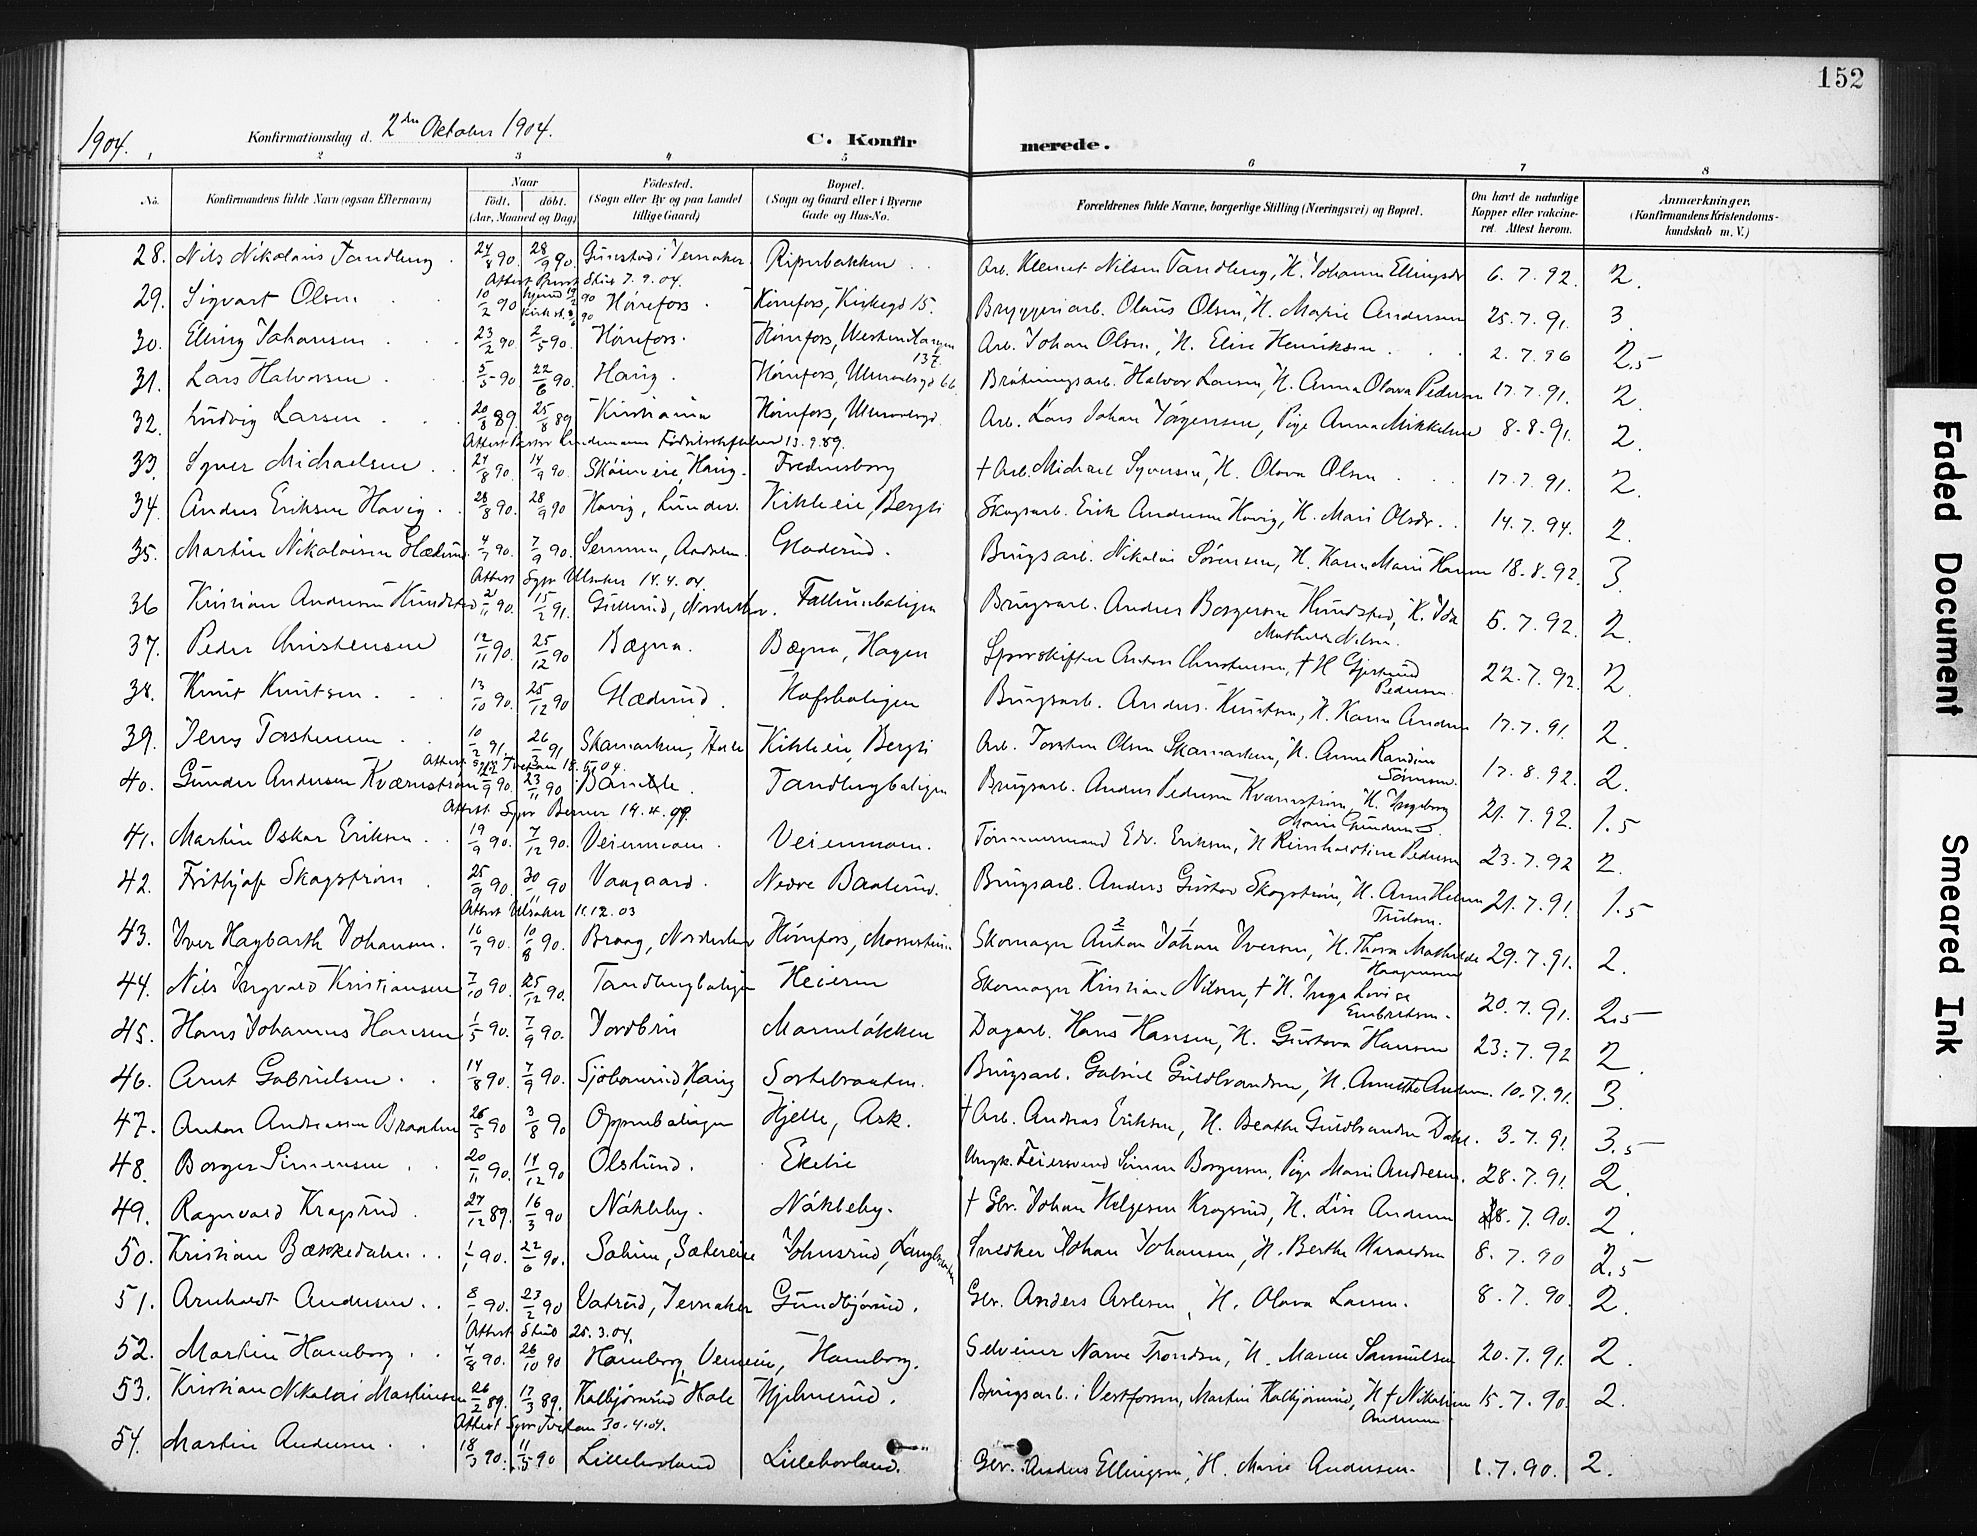 152
1904. Konfirmationsdag d. 2den Oktober 1904. C. Konfirmerede.
1 2 3 4 5 6 7 8
No. Konfirmandens fulde Navn (ogsaa Efternavn) Naar født. døbt. (Aar, Maaned og Dag) Fødested. (Sogn eller By og paa Landet tillige Gaard) Bopæl. (Sogn og Gaard eller i Byerne Gade og Hus-No. Forældrenes fulde Navne, borgerlige Stilling (Næringsvei) og Bopæl. Om havt de naturlige Kopper eller vakcineret. Attest herom. Anmærkninger. (Konfirmandens Kristendomskundskab m. V.)
28. Nils Nikolaus Tandberg 24/8 90 28/9 90 Riperbakken Arb. Klemet Nilsen Tandberg, H. Johanne Ellingsdr 6.7.92. 2.
29. Sigvart Olsen 10/2 90 Hønefos Hønefos, Kirkegd 15. Bryggeriarb. Olaus Olsen, H. Marie Andersen 25.7.91. 3.
30. Elling Johansen 23/2 90. 2/5 90. Hønefos. Hønefos, Arb. Johan Olsen, H. Elise Henriksen 2.7.96 2.5
31. Lars Halvorsen 5/5 90 22/6 90. Haug. Hønefos, Halvor Larsen, H. Anna Olava Pedersen 17.7.91. 2.
32. Ludvig Larsen 20/3 89. 25/8 89 Kristiania Hønefos, Arb. Lars Johan Jørgensen, Pige Anna Mikkelsen 8.8.91. 2.
33. Syver Michaelsen 24/8 90. 14/9 90. Haug. Fredensborg † Arb. Michael Syversen, H. Olava Olsen 17.7.91. 2.
34. Anders Eriksen Hovig. 28/8 90. 28/9 90 Hovig, Lunder. Kihleeie, Bergli Skogsarb. Erik Andersen Hovig, H. Mari Olsdr. 14.7.94. 2.
35. Martin Nikolaisen Glædrud. 4/7 90. 7/9 90. Glædrud. Brugsarb. Nikolai Sørensen, H. Karen Marie Hansen 18.8.92. 3.
Attest Sgpr Ulsaker 14.4.04.
36 Kristian Andersen Hundstad 2/11 90. 15/2 91. Gullerud, Norderhov. Follumboligen Brugsarb. Anders Borgersen Hundstad, H. Ida Mathilde Nilsen. 5.7.92. 2.
37. Peder Christensen 12/11 90. 25/12 90 Bægna. Bægna, Hagen Sporskifter Anton Christensen, † H Gjertrud Pedersen. 22.7.92. 2.
38. Knut Knutsen. 13/10 90. 25/12 90 Glædrud. Hofsboligen Brugsarb. Anders Knutsen, H. Karen Andersen 17.7.91. 2.
39. Jens Torstensen 10/2 91. 26/3 91 Skamarken, Hole Kihleeie, Bergli Arb. Torsten Olsen Skamarken, H. Anne Randine Sørensen. 17.8.92. 2.
40. Gunder Andersen Kværnstrøm 9 90. 23/11 90 Bamble. Tandbergboligen Brugsarb. Anders Pedersen Kværnstrøm, H. Ingeborg Marie Gundersen 21.7.92. 1.5
Attest Sgpr Berner 14.4.99.
41. Martin Oskar Eriksen 19/9 90. 7/12 90. Veienmoen. Veienmoen. Tømmermand Edv. Eriksen, H Reinhardtine Pedersen 23.7.92 2.
42. Frithjof Skogstrøm 25/9 90. 30/11 90 Vaagaard. Nedre Baalerud. Brugsarb. Anders Gustav Skogstrøm, H. Ann Helen 21.7.91. 1.5
Attest Ulsaker 11.12.03
43. Iver Hagbarth Johansen. 16/7 90. 10/8 90. Braag, Norderhov Hønefos, Skomager Anton 2 Johan 1 Iversen, H. Thora Mathilde 29.7.91. 2.
44. Nils Ingvald Kristiansen 7/10 90. 25/12 90. Tandbergboligen Heieren Skomager Kristian Nilsen, † H. Inga Lovise Embretsen. 20.7.91. 2.5
45. Hans Johannes Hansen 1/5 90. 7/9 90. Jordbru Monseløkken Dagarb. Hans Hansen, H. Gustava Hansen 23.7.92 2.
46. Arnt Gabrielsen. 14/8 90. 7/9 90. Haug Sortebraaten. Brugsarb. Gabriel Guldbrandsen, H. Annette Andersen. 10.7.91. 3.
47. Anton Andreassen Braaten 26/5 90 3/8 90 Oppenboligen Hjelle, Ask. † Arb. Andreas Eriksen, H. Beathe Guldbrandsen Dahl. 3.7.91. 3.5
48. Borger Simensen 20/11 90. 14/12 90 Olslund. Ekeeie Ungk. Feiersvend Simen Borgersen, Pige Mari Andresen. 28.7.91. 2.
49. Ragnvald Kragsrud 27/12 89. 16/3 90 Nákleby. Nákleby. † Gbr. Johan Helgesen Kragsrud, H. Lise Andersen 28.7.90. 2.
50. Kristian Bækkedalen 1/1 90. 22/6 90. Johnsrud, Smedker Johan Johansen, H. Berthe Haraldsen 8.7.90 2.5
51. Arnhardt Andersen 8/1 90. 23/2 90 Vatrud, Jevnaker Gundbjørud. Gbr. Anders Arlesen, H. Olava Larsen. 8.7.90. 2.
Attest Skub 25.3.04.
52. Martin Hamborg 4/8 90. 26/10 90 Hamborg Hamborg. Selveier Narve Trondsen, H. Maren Samuelsen 20.7.91. 2.
53. Kristian Nikolai Martinsen 26/2 89. 17/3 89. Kolbjørnrud i Hole Hjelmerud. Brugsarb. i Vestfossen, Martin Kolbjørnrud, H † Nikoline Andersen 15.7.90. 2.
Attest Sgpr Tvetan 30.4.04.
54. Martin Andersen 18/3 90. 11/5 90 Lillehovland Lillehovland. Gbr. Anders Ellingsen, H. Marie Andersen. 1.7.90. 2.
Faded Document
Smeared Ink